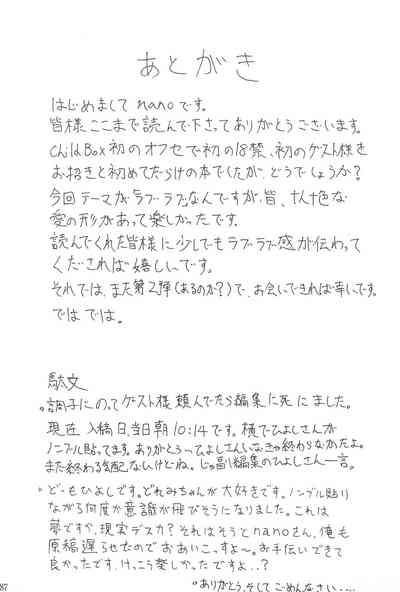 あとがき
はじめまして nanoです。
皆様ここまで読んで下さってありがとうございます。
Child Box 初のオフセで初の18禁、初のゲスト様を
お招きと初めてだらけの本でしたが、どうでしょうか?
今回テーマがラブ・ラブなんですが、皆、十人十色な
愛の形があって楽しかったです。
読んでくれた皆様に少しでもラブ・ラブ感が伝わって
くだされば嬉しいです。
それでは、また第2弾(あるのか?)で、お会いできれば幸いです。
ではでは。
駄文
。調子にのってゲスト様頼んでたら編集に死にました。
現在 入稿日当日朝10:14です。横でひよしさんが
ノンブル貼ってます。ありがとうってひよしさんいなきゃ終わらなかったよ。
まだ終わる気配ないけどね。じゃ副編集のひよしさん一言。
。どーもひよしです。どれみちゃんが大好きです。ノンブル貼り
ながら何度か意識が飛びそうになりました。これは
夢ですか、現実デスカ?それはそうとnanoさん、俺も
原稿遅らせたのでおあいこっすよ〜。お手伝いできて
良かったです。けっこう楽しかったですよ...?
。ありがとう、そして、ごめんなさい....
87